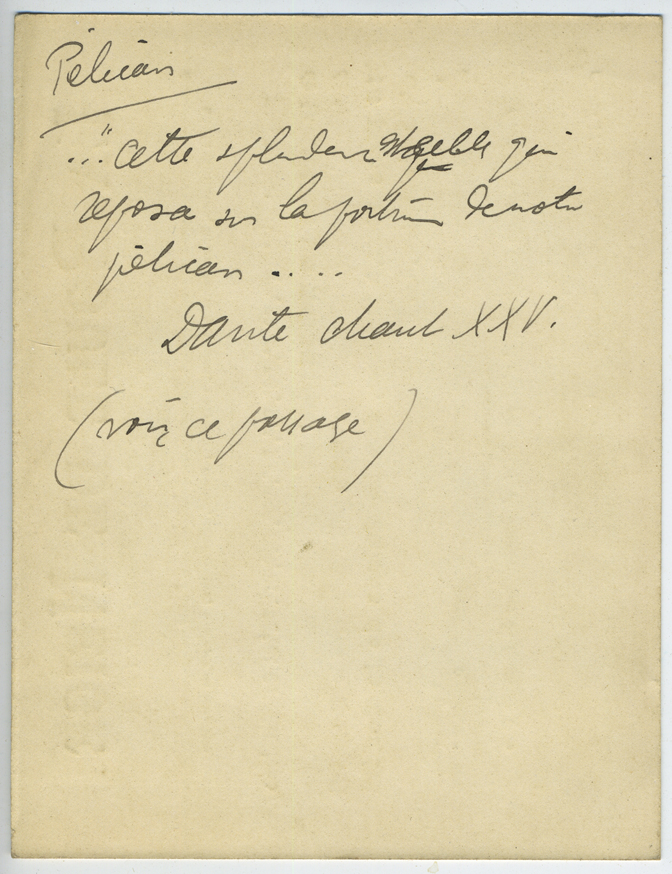 Pélican
..." cette splendeur qui
reposa sur la poitrine de notre
pélican ....
Dante chant XXV.
(voir ce passage)